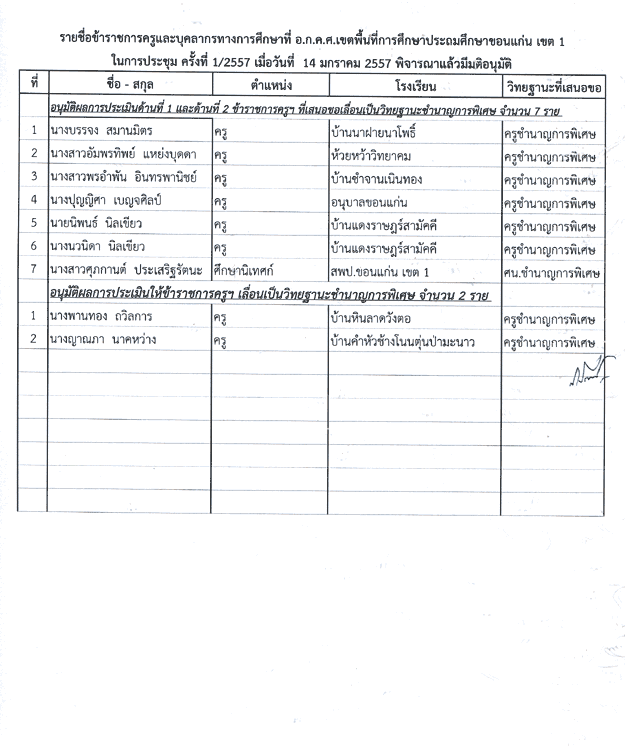 รายชื่อข้าราชการครูและบุคลากรทางการศึกษาที่ อ.ก.ค.ศ.เขตพื้นที่การศึกษาประถมศึกษาขอนแก่น เขต 1
ในการประชุม ครั้งที่ 1/2557 เมื่อวันที่ 14 มกราคม 2557 พิจารณาแล้วมีมติอนุมัติ
ที่ ชื่อ - สกุล ตำแหน่ง โรงเรียน วิทยฐานะที่เสนอขอ
อนุมัติผลการประเมินด้านที่ 1 และด้านที่ 2 ข้าราชการครูฯ ที่เสนอขอเลื่อนเป็นวิทยฐานะชำนาญการพิเศษ จำนวน 7 ราย
1 นางบรรจง สมานมิตร ครู บ้านนาฝายนาโพธิ์ ครูชำนาญการพิเศษ
2 นางสาวอัมพรทิพย์ แหย่งบุดดา ครู ห้วยหว้าวิทยาคม ครูชำนาญการพิเศษ
3 นางสาวพรอำพัน อินทรพานิชย์ ครู บ้านชำจานเนินทอง ครูชำนาญการพิเศษ
4 นางปุญญิศา เบญจศิลป์ ครู อนุบาลขอนแก่น ครูชำนาญการพิเศษ
5 นายนิพนธ์ นิลเขียว ครู บ้านแดงราษฎร์สามัคคี ครูชำนาญการพิเศษ
6 นางนวนิดา นิลเขียว ครู บ้านแดงราษฎร์สามัคคี ครูชำนาญการพิเศษ
7 นางสาวศุภกานต์ ประเสริฐรัตนะ ศึกษานิเทศก์ สพป.ขอนแก่น เขต 1 ศน.ชำนาญการพิเศษ
อนุมัติผลการประเมินให้ข้าราชการครูฯ เลื่อนเป็นวิทยฐานะชำนาญการพิเศษ จำนวน 2 ราย
1 นางพานทอง ถวิลการ ครู บ้านหินลาดวังตอ ครูชำนาญการพิเศษ
2 นางญาณภา นาคหว่าง ครู บ้านคำหัวช้างโนนตุ่นป่ามะนาว ครูชำนาญการพิเศษ